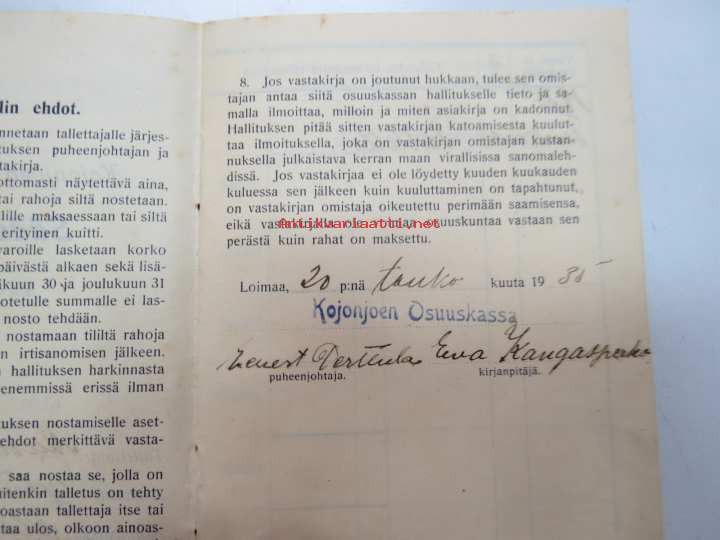 lin ehdot.
nnetaan tallettajalle järjes-
tuksen puheenjohtajan ja
takirja.
ottomasti näytettävä aina,
tai rahoja siltä nostetaan.
lille maksaessaan tai siltä
erityinen kuitti.
varoille lasketaan korko
päivästä alkaen sekä lisä-
ikuun 30 ja joulukuun 31
otetulle summalle ei las-
nosto tehdään.
nostamaan tililtä rahoja
irtisanomisen jälkeen.
hallituksen harkinnasta
enemmissä erissä ilman
tuksen nostamiselle aset-
ehdot merkittävä vasta-
saa nostaa se, jolla on
uitenkin talletus on tehty
oastaan tallettaja itse tai
taa ulos, olkoon ainoas-
8. Jos vastakirja on joutunut hukkaan, tulee sen omis-
tajan antaa siitä osuuskassan hallitukselle tieto ja sa-
malla ilmoittaa, milloin ja miten asiakirja on kadonnut.
Hallituksen pitää sitten vastakirjan katoamisesta kuulut-
taa ilmoituksella, joka on vastakirjan omistajan kustan-
nuksella julkaistava kerran maan virallisissa sanomaleh-
dissä. Jos vastakirjaa ei ole löydetty kuuden kuukauden
kuluessa sen jälkeen kuin kuuluttaminen on tapahtunut,
on vastakirjan omistaja oikeutettu perimään saamisensa,
eikä vastakirjalla ole voimaa osuuskuntaa vastaan sen
perästä kuin rahat on maksettu.
antikvariaatti.net
Loimaa, 20 p:nä touko kuuta 1935
Kojonjoen Osuuskassa
Eenert Perttula Eva Kangasperko
puheenjohtaja. kirjanpitäjä.